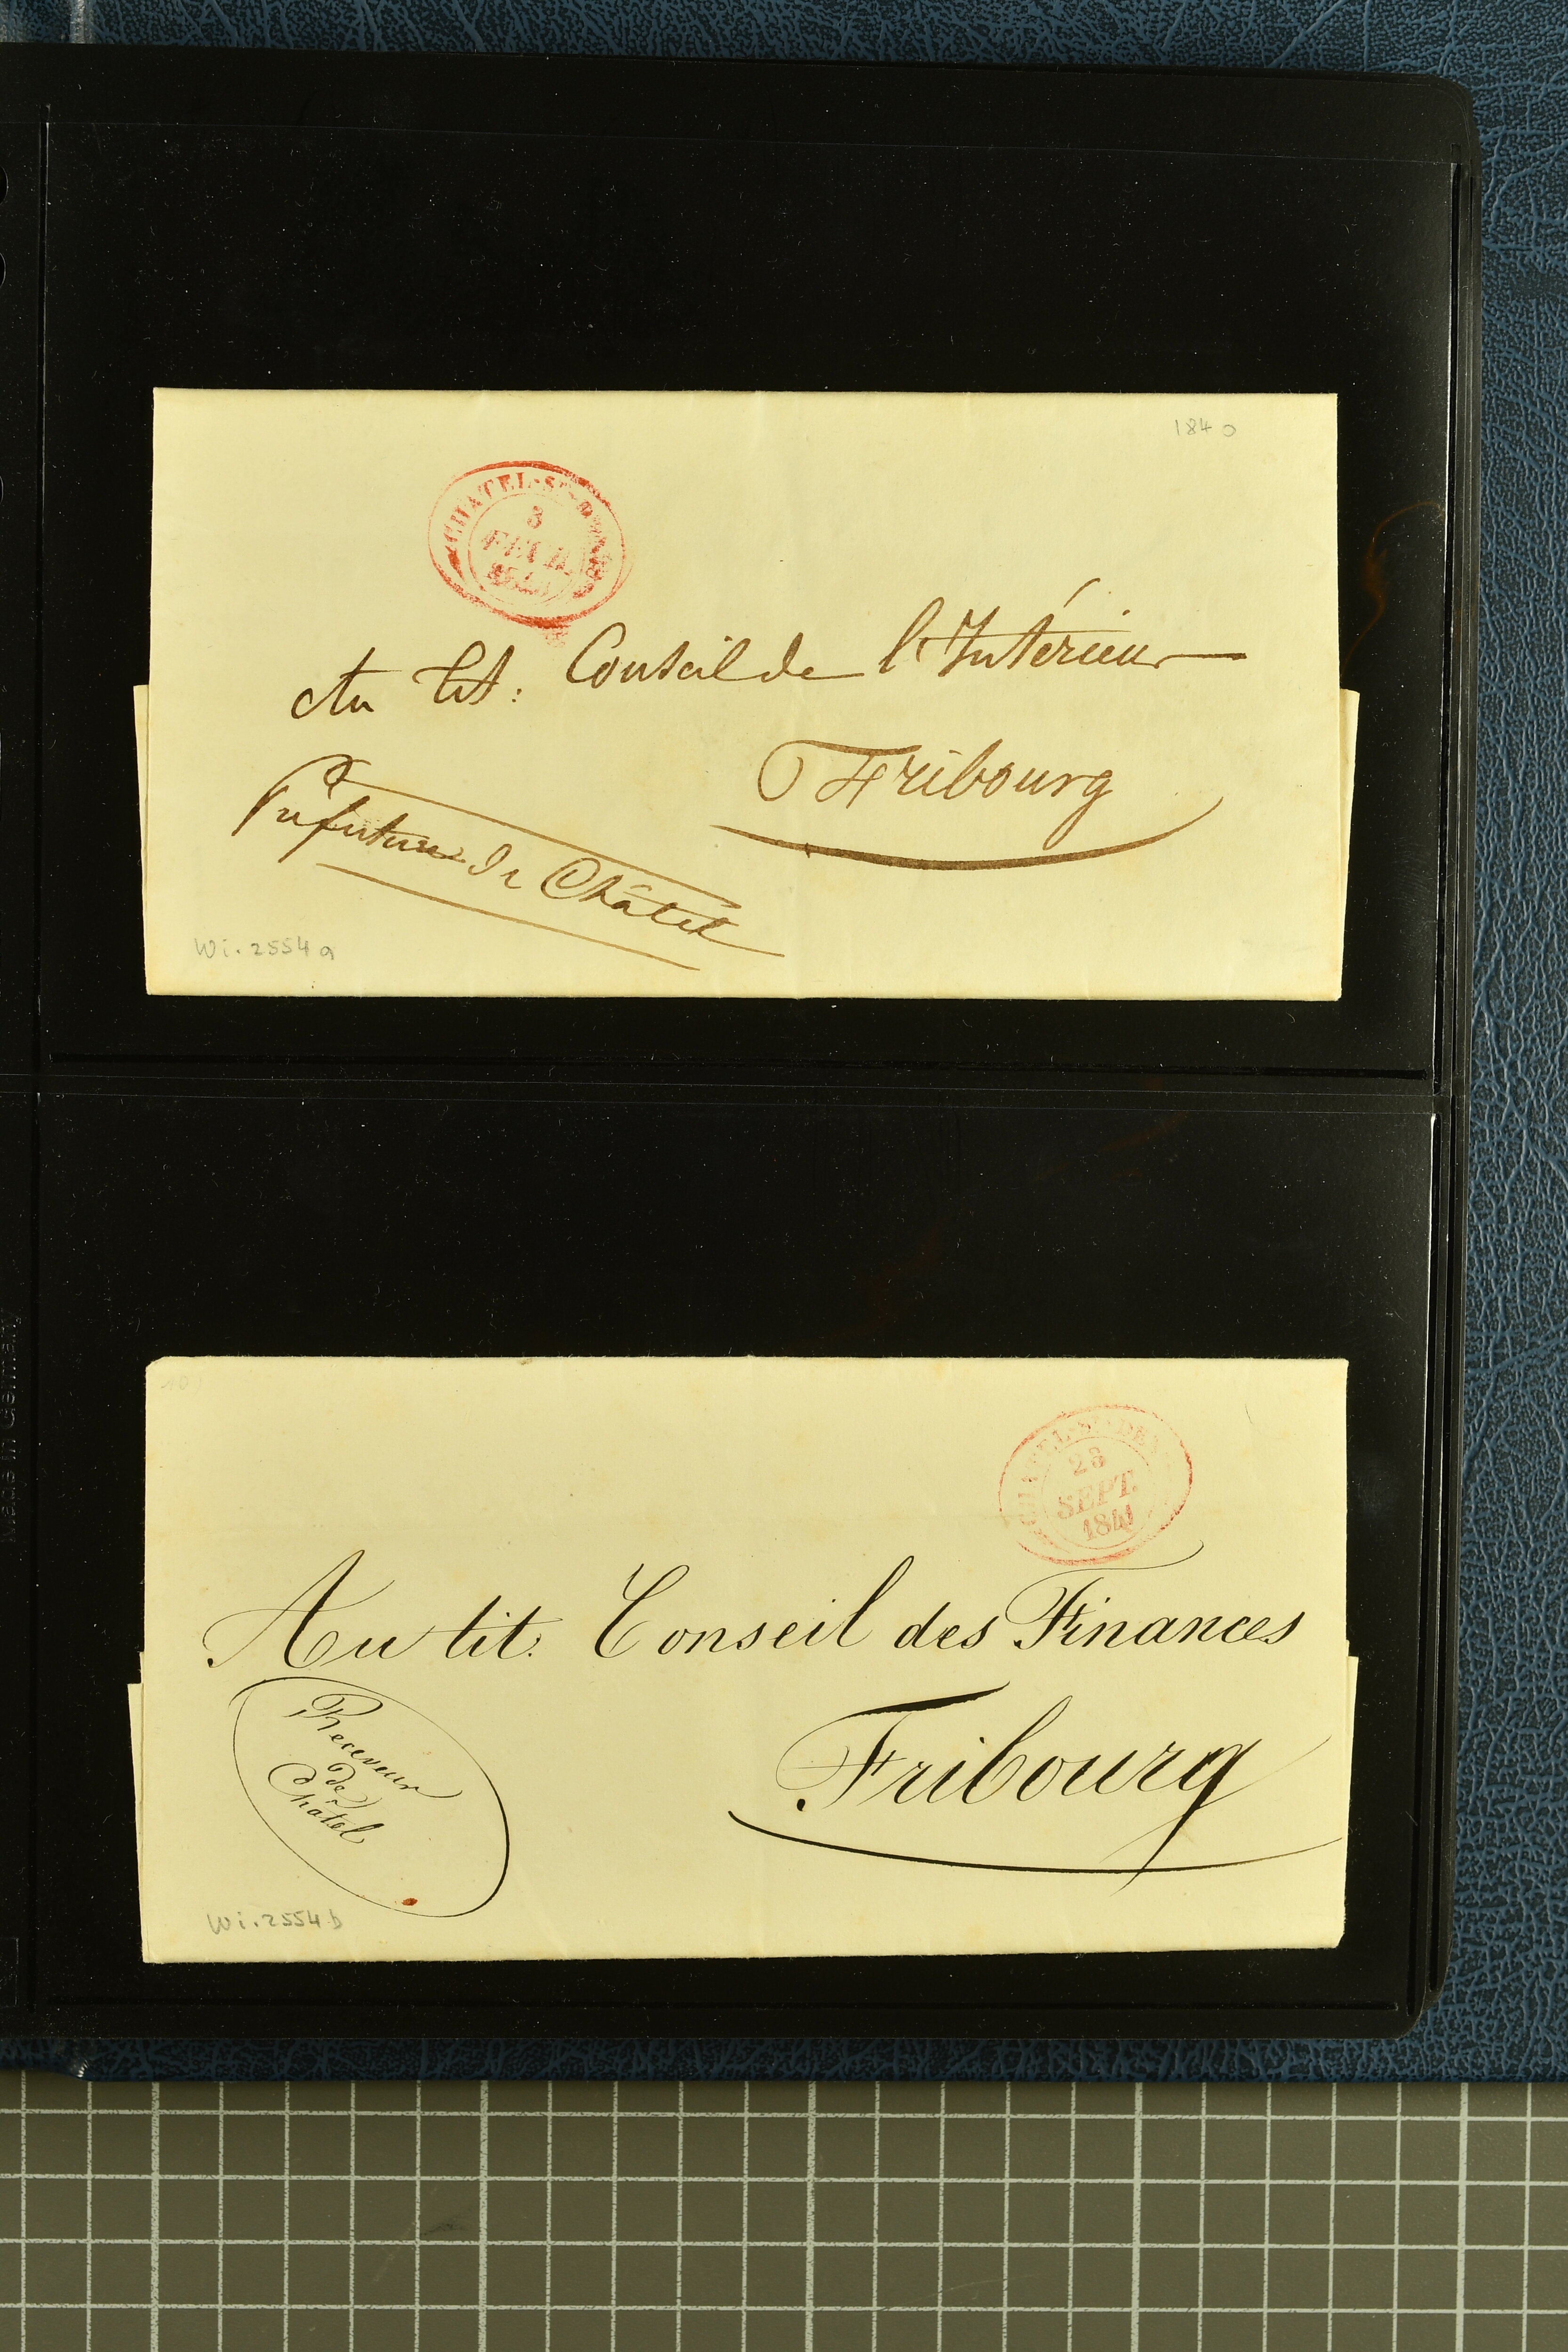 1840
CHATEL-ST-DENIS
3
FEVR.
Au tit: Conseil de l'Intérieur
Fribourg
Préfecture de Châtel
Wi. 2554 a
CHATEL-ST-DENIS
28
SEPT.
1841
Au tit. Conseil des Finances
Receveur
de
Châtel
Fribourg
Wi. 2554 b
Made in Germany